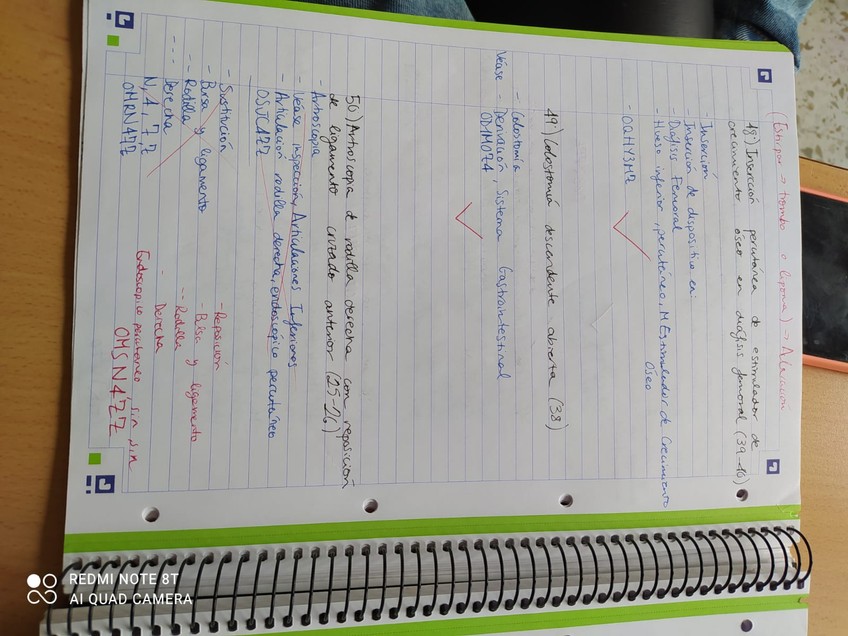 (Extirpar → trombo o lipoma) → Alteración
48) Inserción percutánea de estimulador de
crecimiento óseo en diáfisis femoral (39-40)
- Inserción
- Inserción de dispositivo en:
- Diáfisis Femoral
- Hueso inferior, percutáneo, M Estimulador de Crecimiento
Óseo
- OQHY3MZ
49) Colostomía descendente abierta (38)
- Colostomía
Véase - Derivación, Sistema Gastrointestinal
OD1M0Z4
50) Artroscopia de rodilla derecha con reposición
de ligamento cruzado anterior (25-26)
- Artroscopia
- Véase inspección, Articulaciones Inferiores
- Articulación rodilla derecha, endoscópico percutáneo
OSJC4ZZ
- Sustitución
- Bursa y ligamento
-- Rodilla
--- Derecha
N, 4, Z Z
OMRN4ZZ
- Reposición
- Bursa y ligamento
-- Rodilla
- Derecha
Endoscopico percutaneo sin sin
OMSN4ZZ
REDMI NOTE 8T
AI QUAD CAMERA